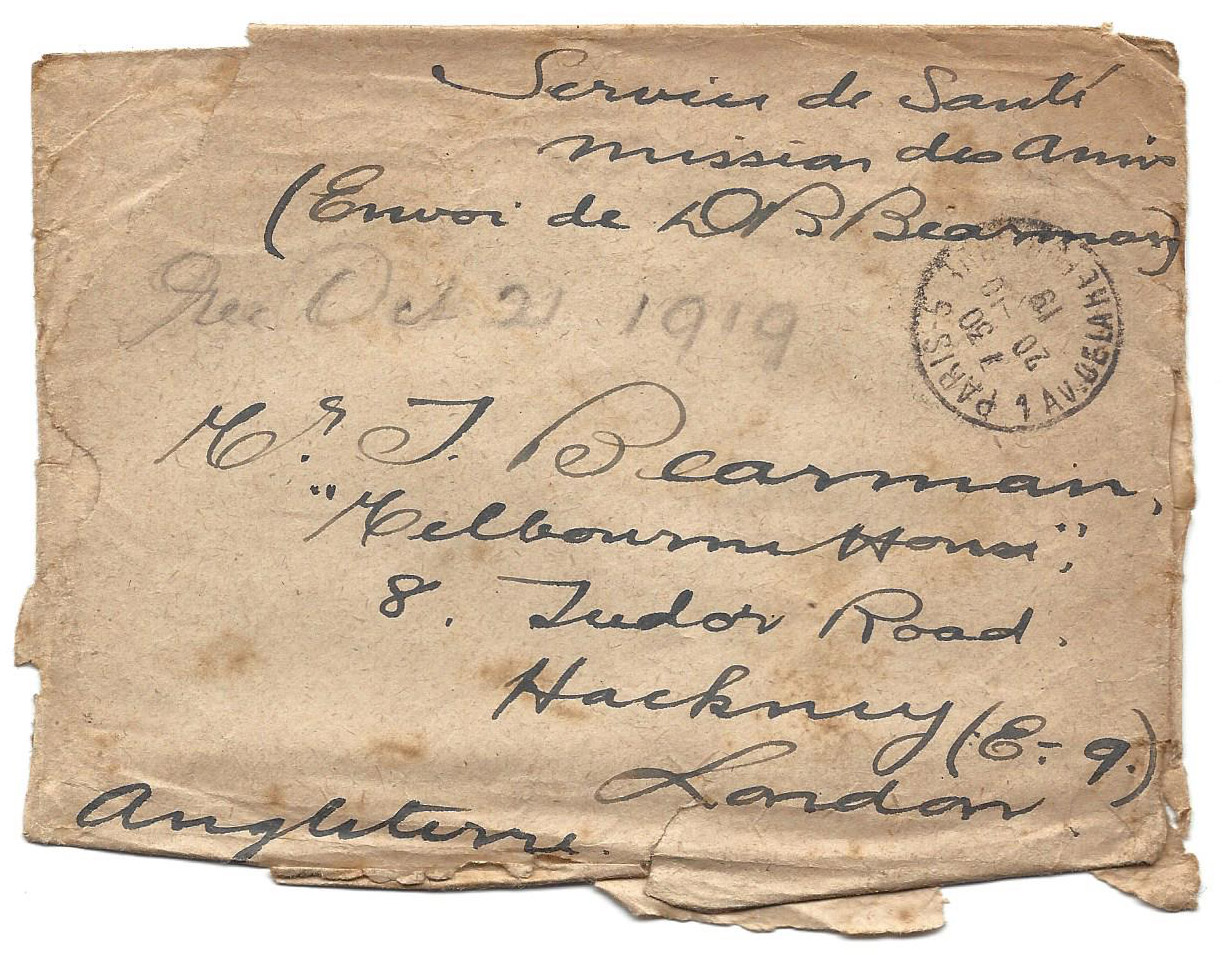 Service de Santé
Mission des Amis
(Envoi de D B Bearman)
Rec Oct 21 1919
PARIS-5 1 AV. DE LA
7 30
20 -10
19
Mr. T. Bearman,
"Melbourne House",
8. Tudor Road.
Hackney (E- 9.)
London
Angleterre.